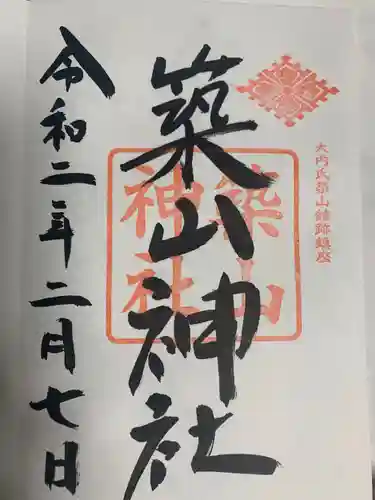 大内氏築山館跡鎮座
築山神社
築山神社
令和二年二月七日